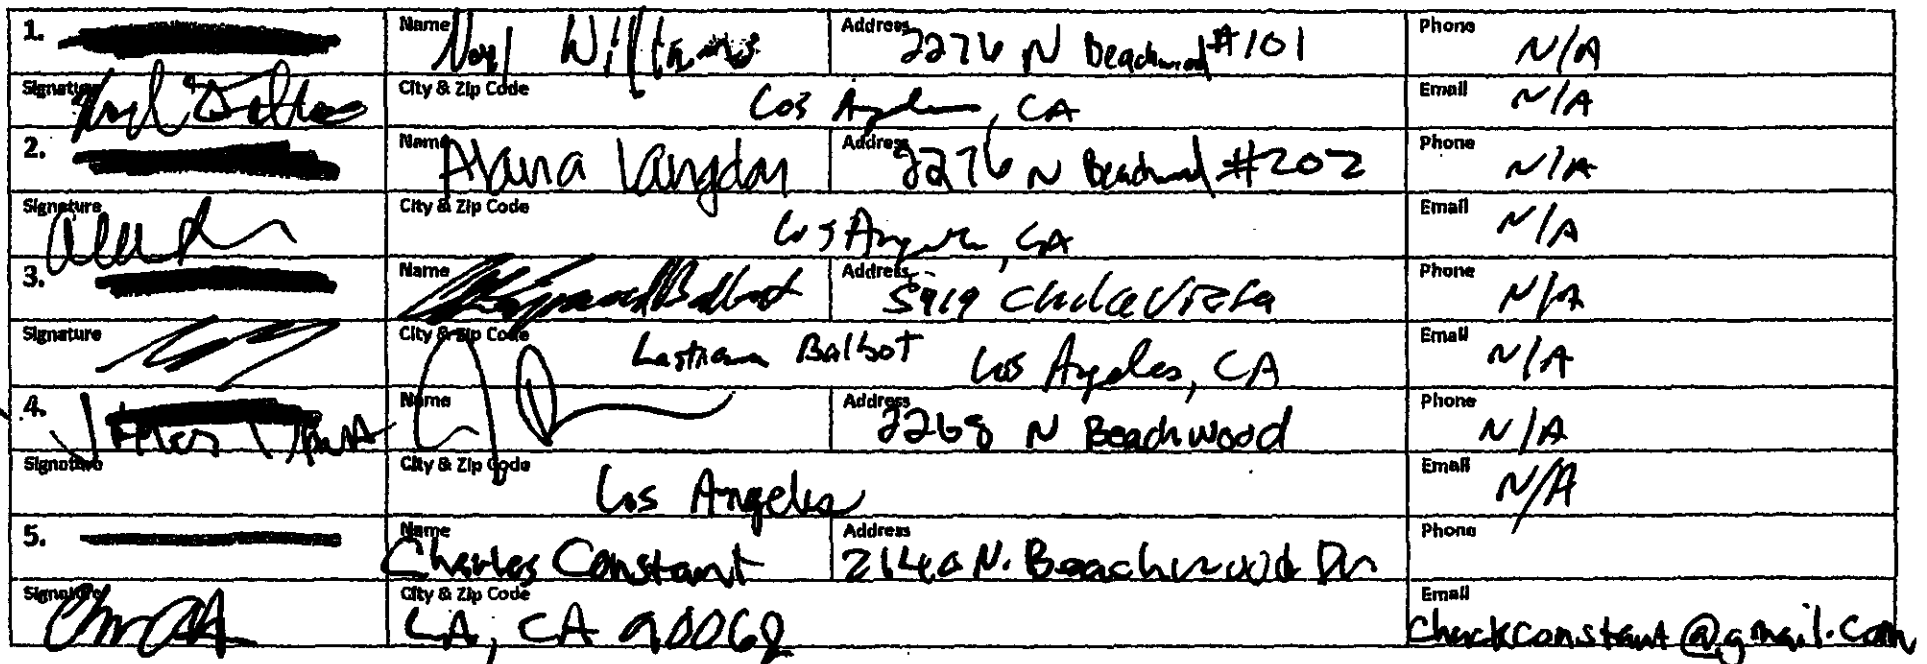 1. Name Noel Williams Address 2276 N Beachwood #101 Phone N/A
Signature City & Zip Code Los Angeles, CA Email N/A
2. Name Alana Langdon Address 2276 N Beachwood #202 Phone N/A
Signature City & Zip Code Los Angeles, CA Email N/A
3. Name Balbot Address 5919 Chula Vista Phone N/A
Signature City & Zip Code Balbot Los Angeles, CA Email N/A
4. Name Address 2268 N Beachwood Phone N/A
Signature City & Zip Code Los Angeles Email N/A
5. Name Charles Constant Address 2140 N. Beachwood Dr Phone
Signature City & Zip Code LA, CA 90068 Email chuckconstant@gmail.com